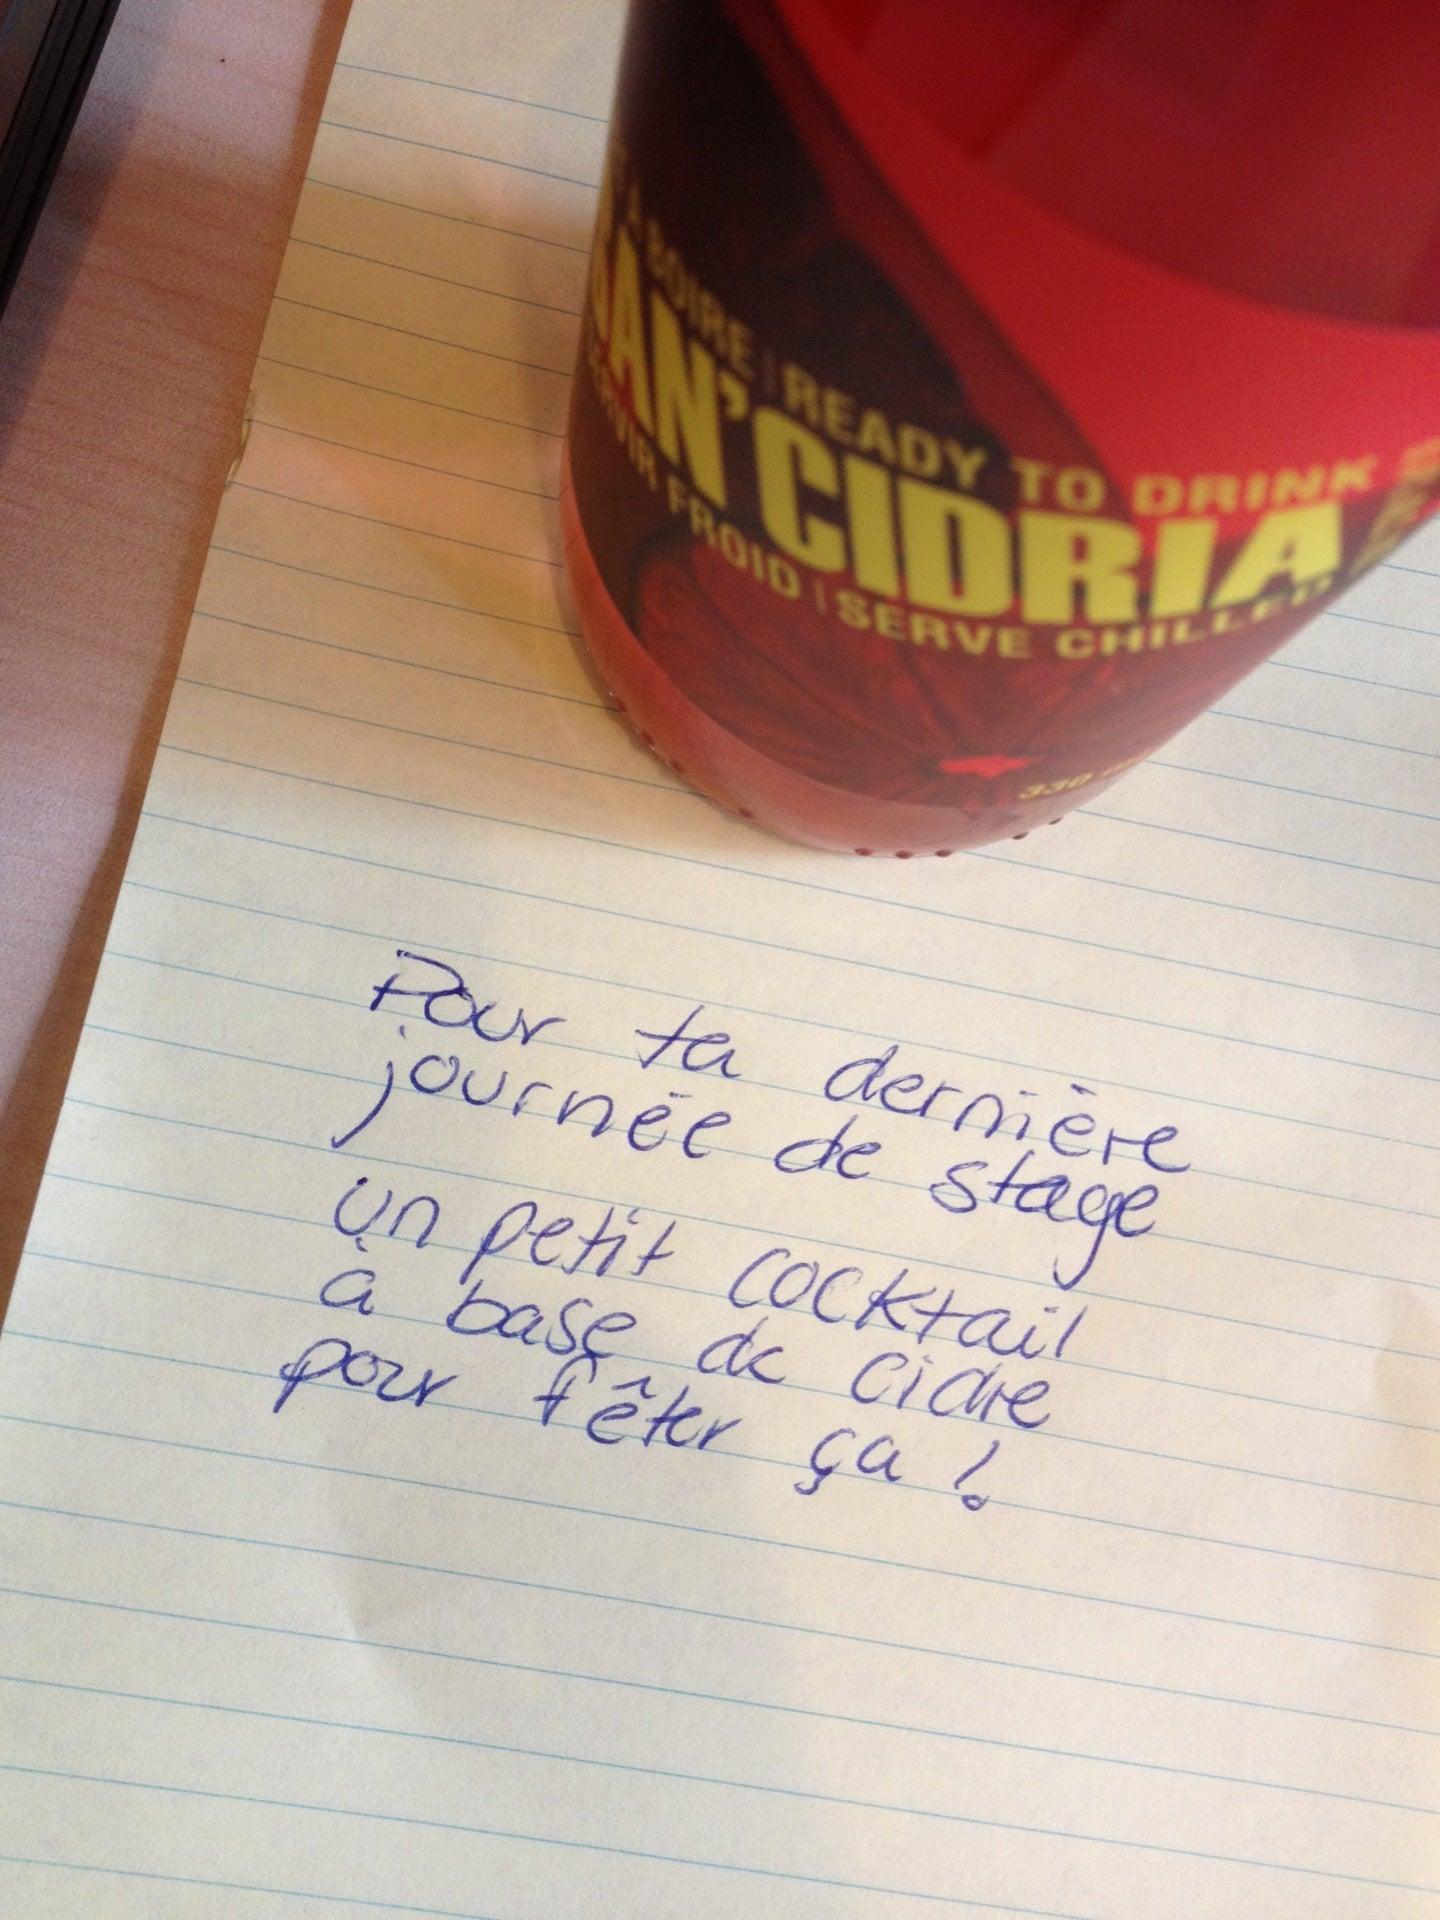 À BOIRE | READY TO DRINK
SAN'CIDRIA
SERVIR FROID | SERVE CHILLED
330
Pour ta dernière
journée de stage
un petit cocktail
à base de cidre
pour fêter ça !